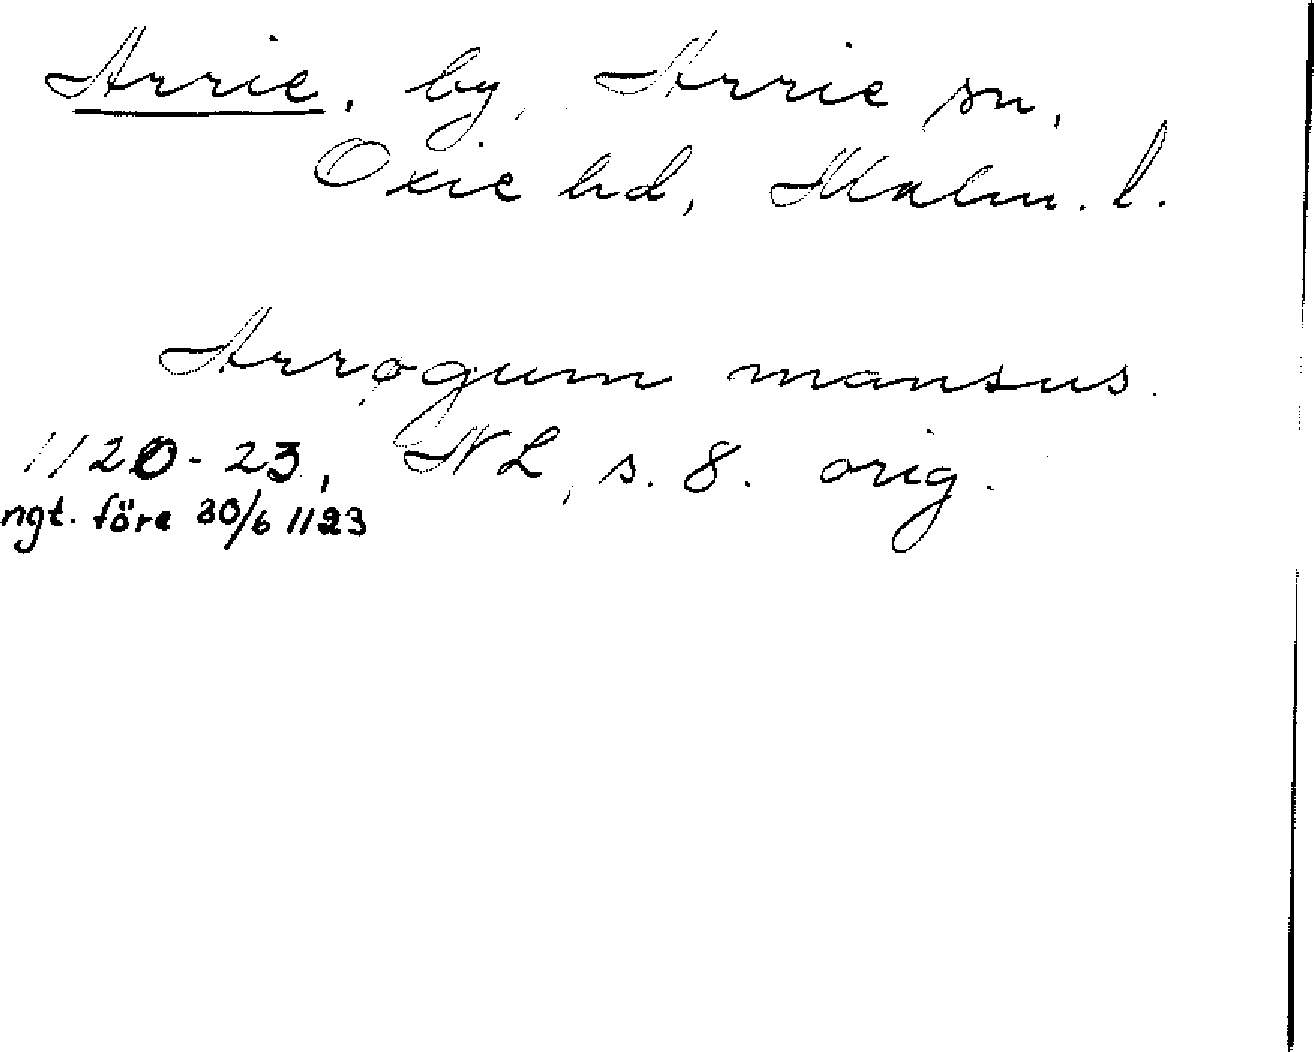 Arrie, by, Arrie sn,
Oxie hd, Malm. l.
Arrøgum mansus.
1120-23, NL, s. 8. orig.
ngt. före 30/6 1123